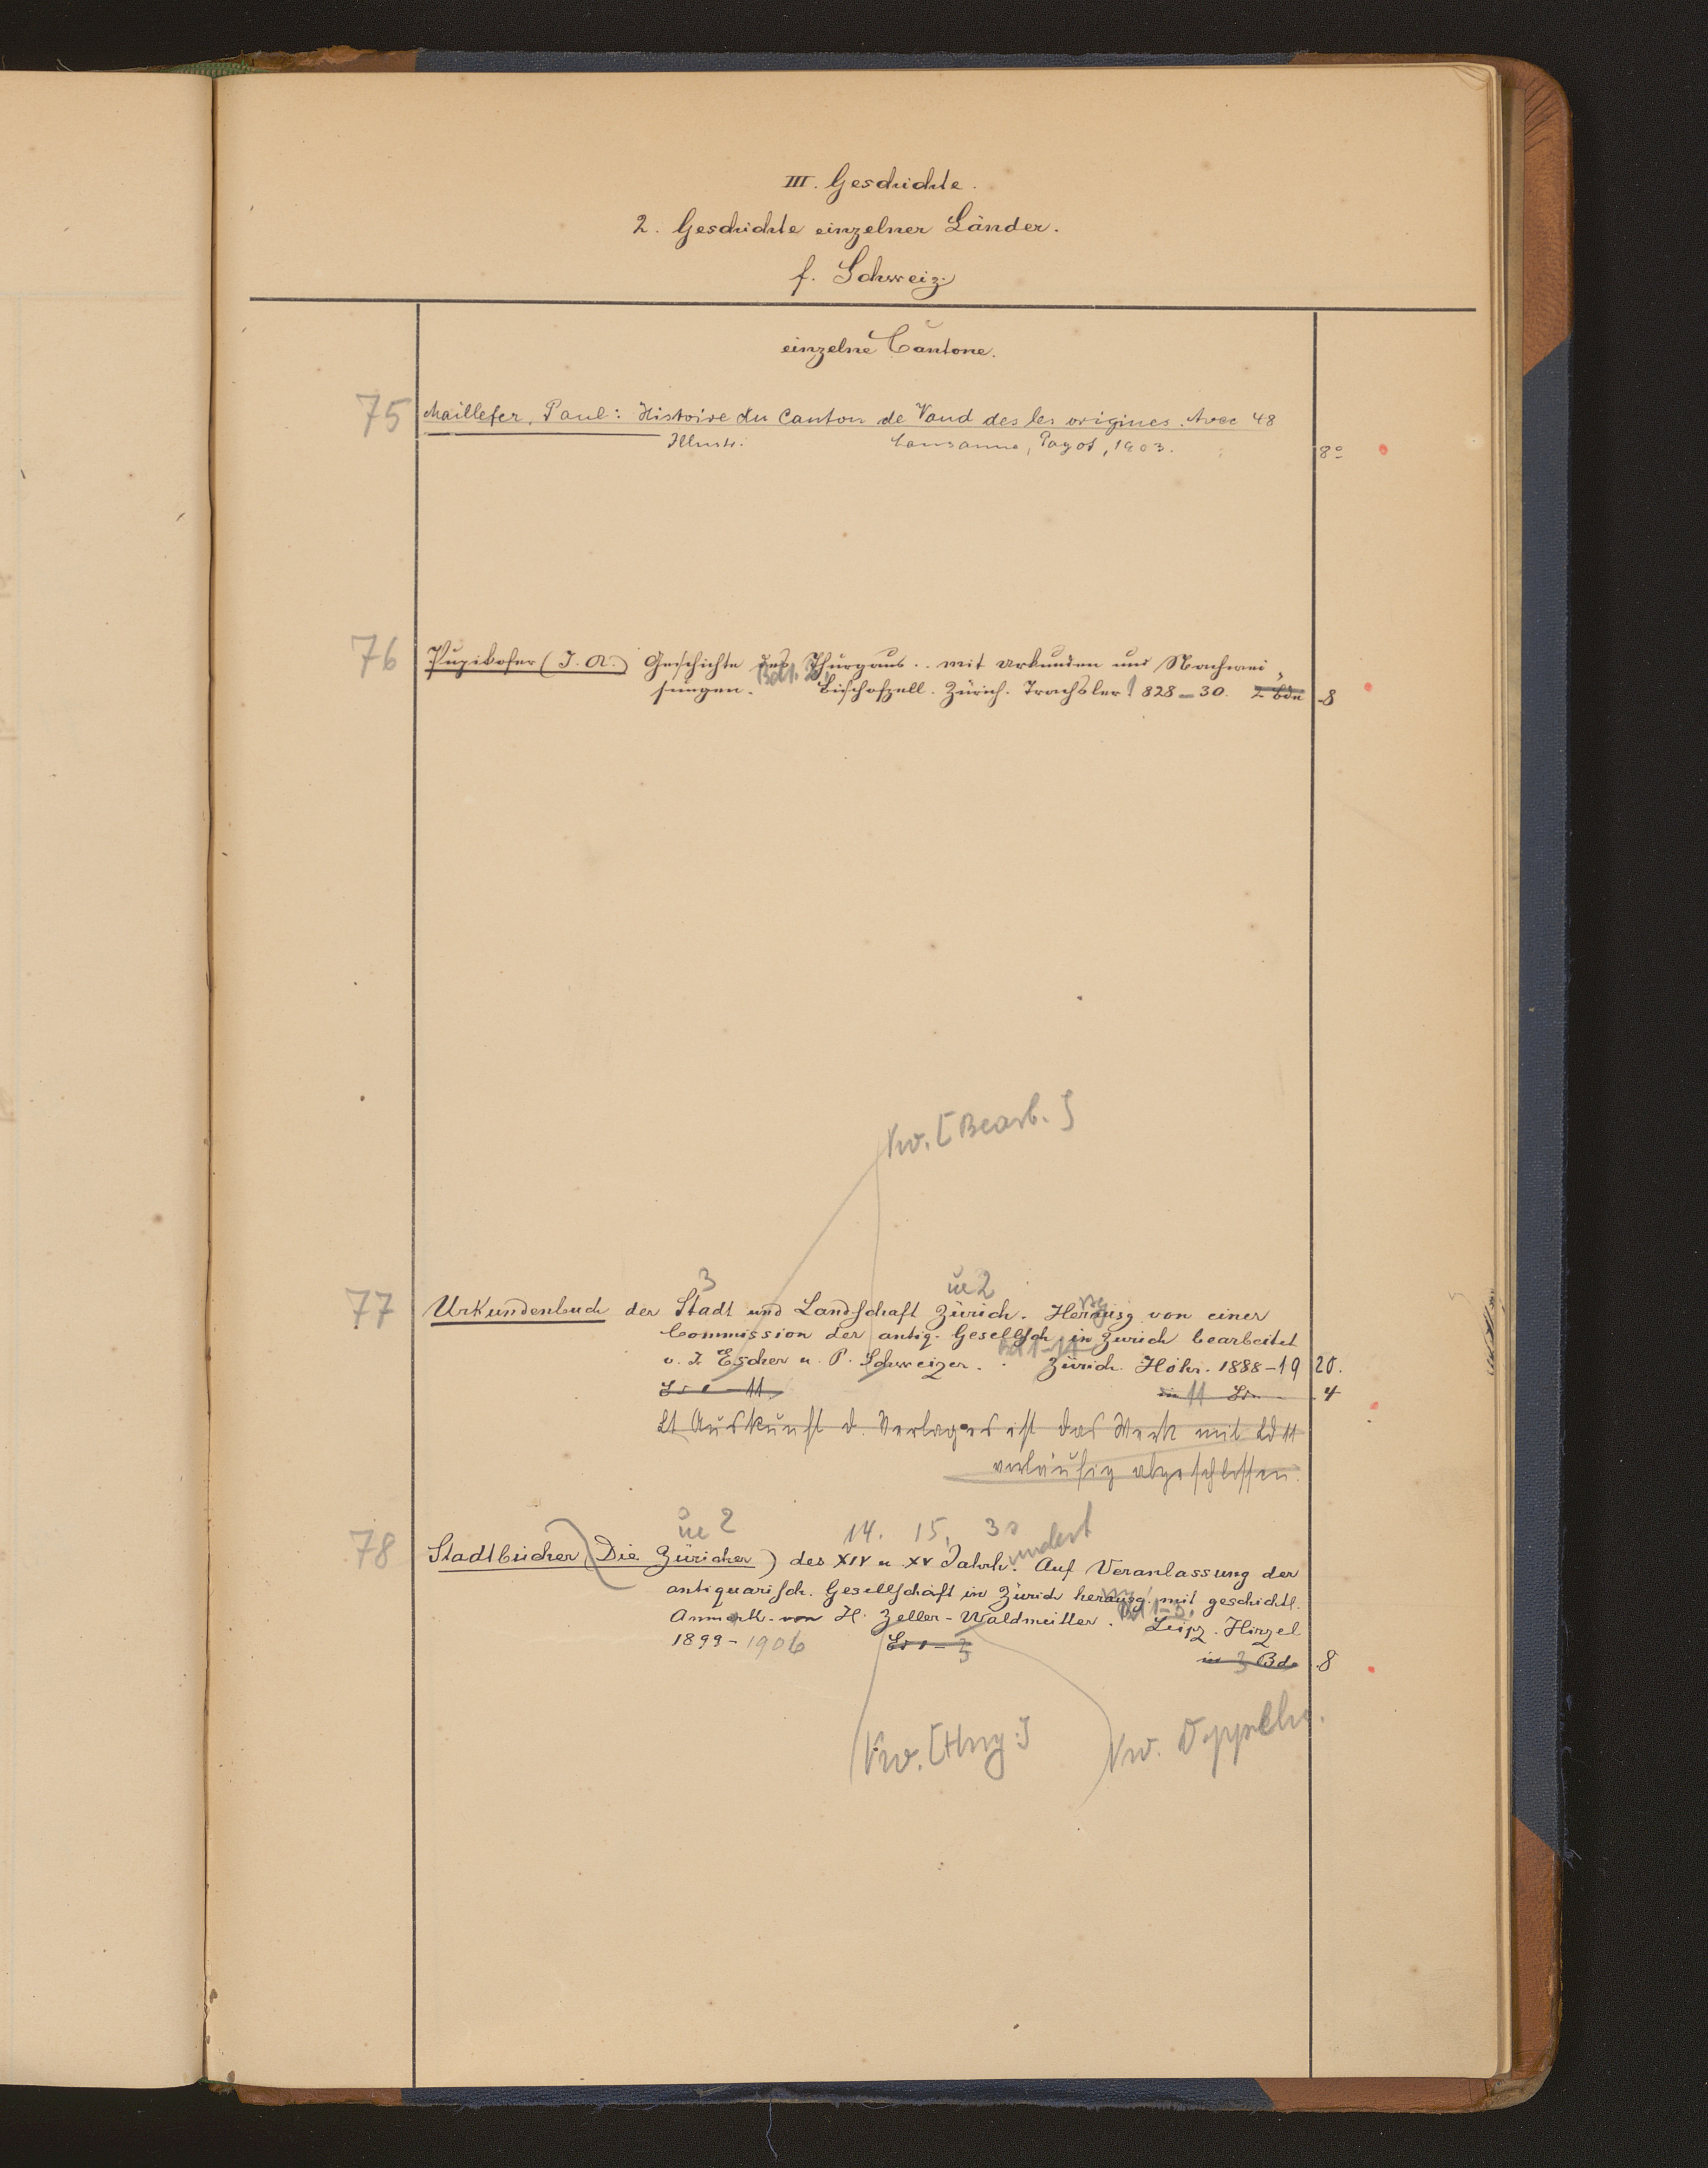 III. Geschichte.
2. Geschichte einzelner Länder.
f. Schweiz.
einzelne Cantone.
75 Maillefer, Paul: Histoire du Canton de Vaud des les origines. Avec 48
Illustr. Lausanne, Payot, 1903. 8°
76 Pupikofer (J. A.) Geschichte des Thurgaus.. mit Urkunden und Nachwei„
sungen. Bd 1. 2. Bischofzell. Zürich. Trachsler 1828-30. 2 Bde 8
Vw. [Bearb.]
3 ue 2
77 Urkundenbuch der Stadt und Landschaft Zürich. Herausg von einer
Commission der antiq. Gesellsch. in Zürich bearbeitet
Bd 1-11
v. J. Escher u. P. Schweizer. Zürich. Höhr. 1888-1920.
Bd 1-11 in 11 Bdn 4
Lt Auskunft d. Verlages ist das Werk mit Bd 11
vorläufig abgeschlossen.
ue 2 14. 15. 3
78 Stadtbücher (Die Züricher) des XIV u XV Jahrh.undert Auf Veranlassung der
antiquarisch. Gesellschaft in Zürich herausg. mit geschichtl.
Anmerk. von H. Zeller-Werdmüller. Bd 1-3. Leipz. Hirzel
1899-1906 Bd 1-3
in 3 Bd. 8
Vw. [Hrsg.] Vw. Doppeln.